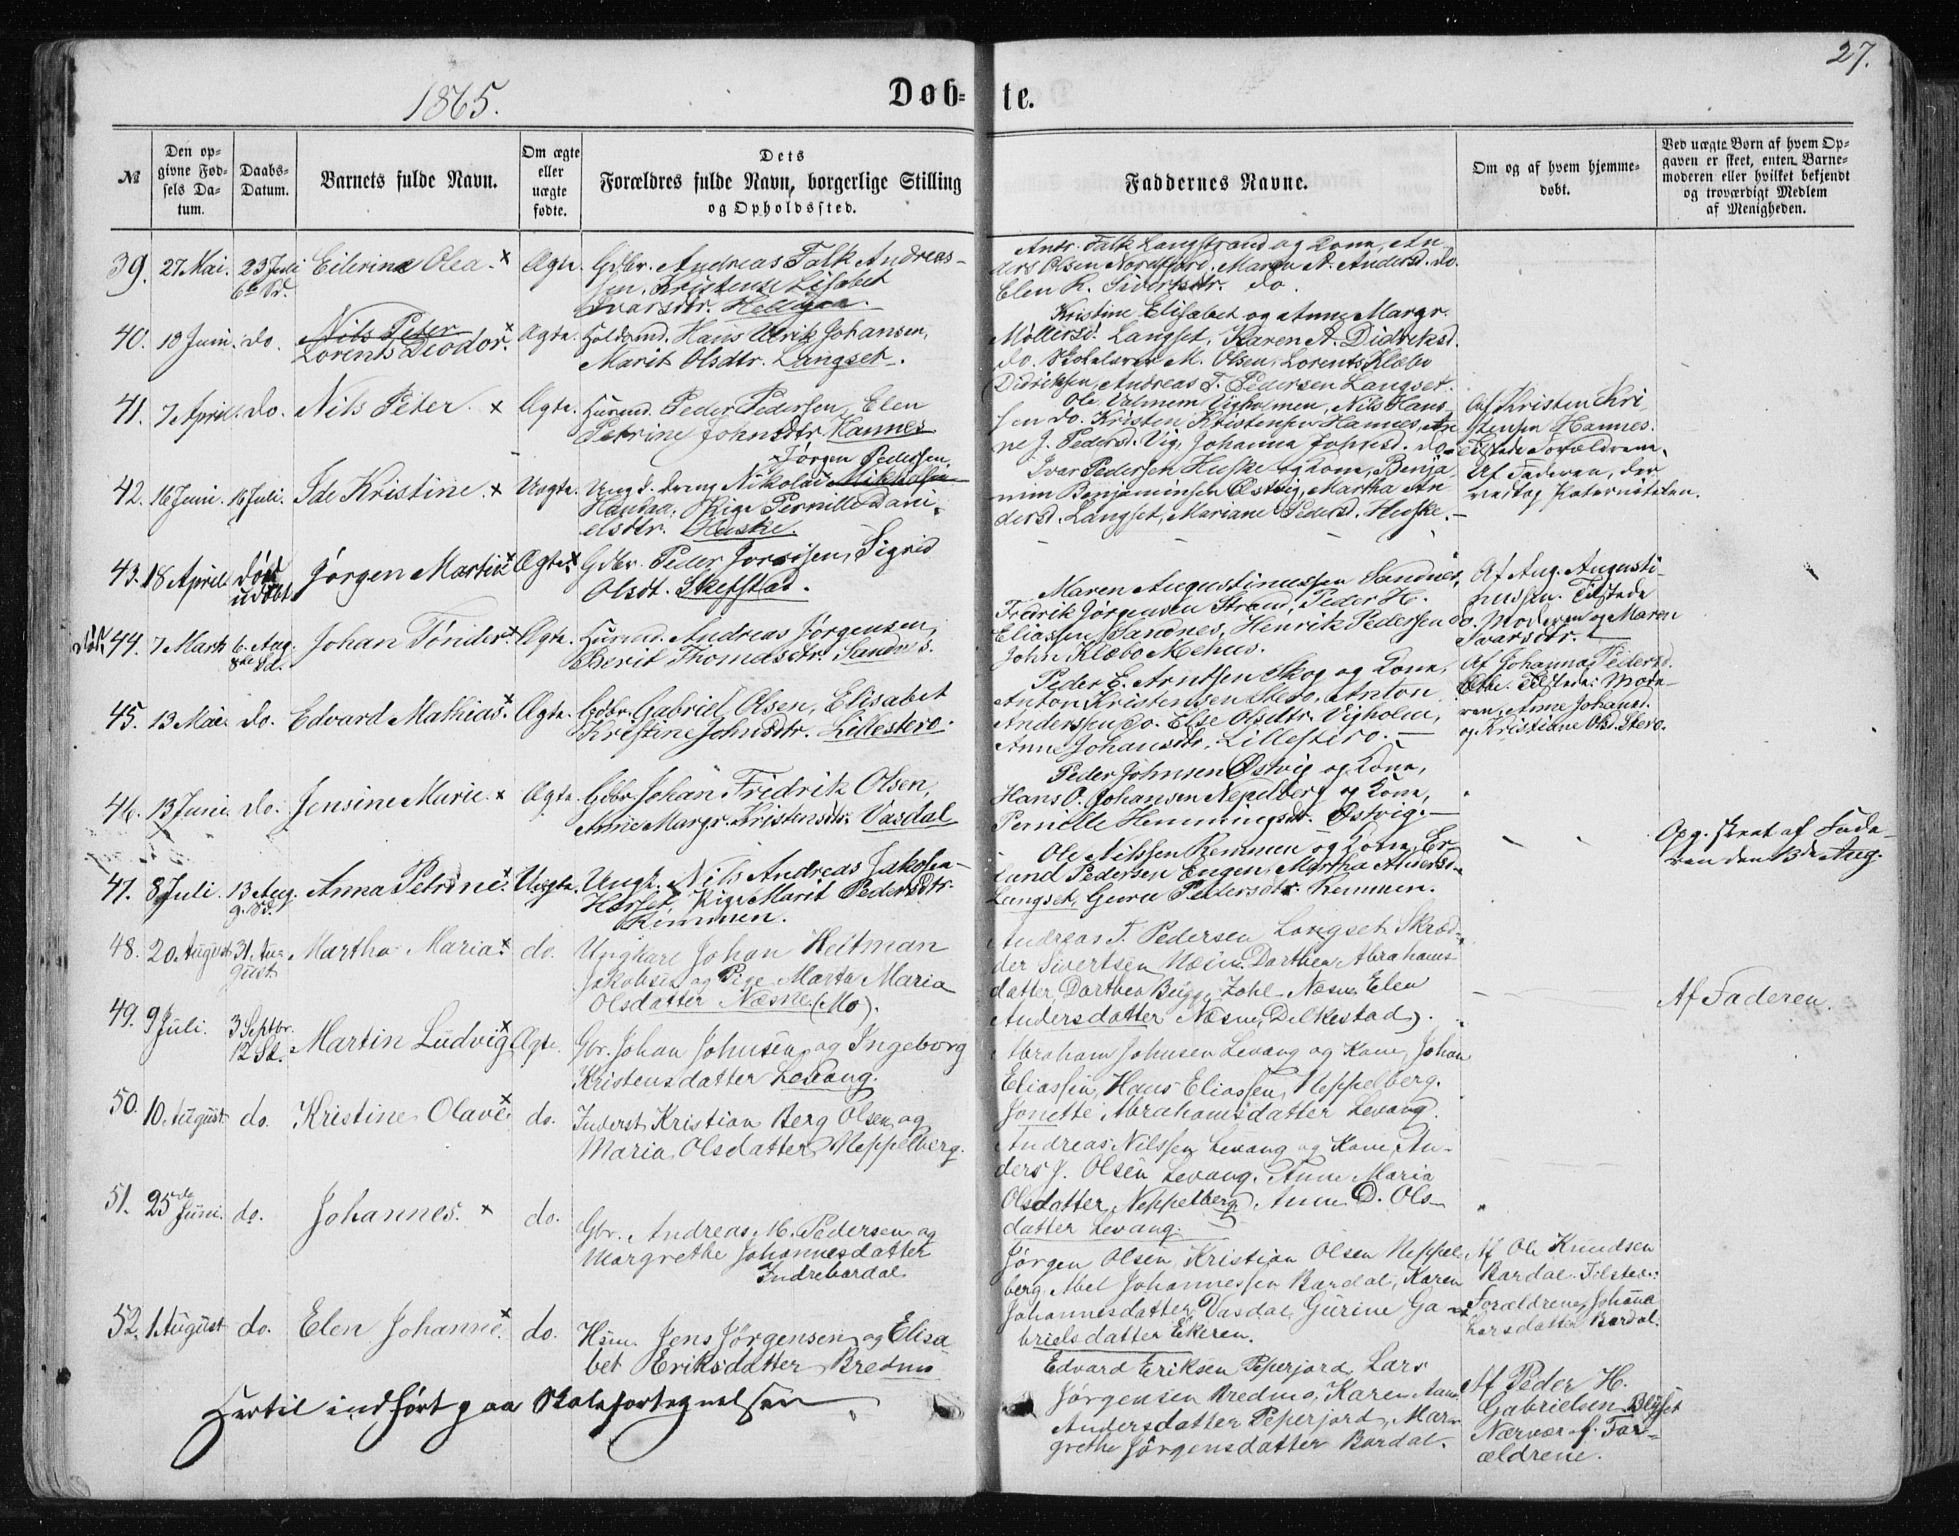 27.
1865.
Døb- te.
№
Den op-
givne Fød-
sels Da-
tum.
Daabs-
Datum.
Barnets fulde Navn.
Om ægte
eller
uægte
fødte.
Dets
Forældres fulde Navn, borgerlige Stilling
og Opholdssted.
Faddernes Navne.
Om og af hvem hjemme-
døbt.
Ved uægte Børn af hvem Op-
gaven er skeet, enten Barne-
moderen eller hvilket bekjendt
og troværdigt Medlem
af Menigheden.
39. 27 Mai. 23 Juli
6te Sd.
Eilerine Olea. x
Ægte.
Gdbr. Andreas Falk Andreas-
sen, Kristense Lisabet
Ivarsdtr.
Andr. Falk Langstrand og Kone, An-
ders Olsen Nordfjord, Maren A. Andersd. do.
Elen K. Sivertsdtr. do.
40. 18 Juni. do.
Nils Peter
Lorents Deodor. x
Ægte.
Holdsmd. Hans Ulrik Johansen,
Marit Olsdtr. Langset.
Kristine Elisabet og Anne Margr.
Langset, Karen A. Didriksd.
do. Skolelærer M. Olsen, Lorents Klæbo
Didriksen, Andreas T. Pedersen Langset.
41. 7 April. do. Nils Peter. x
Ægte.
Husmd. Peder Pedersen, Elen
Petrine Johnsdtr. Hannes.
Ole Vigholmen, Nils Hans-
sen do. Kristen Kristensen Hannes, An-
ne J. Pedersd. Vig, Johanna Johnsd. do.
Af Kristen Kri-
stensen Hannes.
Tilstede Forældrene.
42. 16 Juni. 16 Juli. Ide Kristine. x
Uægte.
x Jørgen Pedersen
Ung d. dreng Nikolai Mikkelsen
Pige Pernille Dani-
elsdtr. Huske.
Ivar Pedersen Huske og Kone, Benja-
min Benjaminsen Østvig, Martha An-
dersd. Langset, Mariane Pedersd. Huske.
Af Faderen, der
vedtog Paterniteten.
43. 18 April død
udøbt
Jørgen Martin x
Ægte. x
Gdbr. Peder Sigrid
Olsdt. Skefstad.
44. 7 Marts 6. Aug.
8de Sd.
Johan Tønder. x
Ægte.
Husmd. Andreas Jørgensen,
Berit Thomasdtr. Sandnes.
Maren Augustinussen Sandnes,
Fredrik Jørgensen Strand, Peder H.
Eliassen Sandnes, Henrik Pedersen do.
John Klæbo Mehus.
Af Aug. Augusti-
nussen. Tilstede
Moderen og Maren
Ivarsdtr.
45. 13 Mai. do. Edvard Mathias. x
Ægte.
Gdbr. Gabriel Olsen, Elisabet
Kristine Johnsdtr. Lillestero.
Peder E. Arntsen Skog og Kone,
Anton Kristensen Stero, Anton
Andersen do. Else Olsdtr. Vigholm,
Anne Johansdtr. Lillestero.
Af Johannes Pedersd.
Tilstede: Mode-
ren, Anne Johansd.
og Kristiane Olsd. Stero.
46. 13 Juni. do. Jensine Marie. x
Ægte.
Gdbr. Johan Fridrik Olsen,
Anne Margr. Kristensdtr. Vasdal
Peder Johnsen Østvig og Kone,
Hans O. Johansen Nepelberg og Kone,
Pernille Hemmingsdtr. Østvig.
47. 8 Juli. 13 Aug.
9. Sd.
Anna Petrine. x
Uægte.
Ungk. Nils Andreas Jakobs-
Pige Marit Pedersdtr.
Remmen.
Ole Nilssen Remmen og Kone, Er-
land Pedersen Engen, Martha Andersd.
Langset, Guru Pedersdtr. Remmen.
Opg. skeet af Fade-
ren den 13de Aug.
48. 20 August 31. Au-
gust
Martha Maria. x
do.
Ungkarl Johan Heitman
Jakobsen og Pige Marta Maria
Olsdatter Næsne (Mo).
Andreas T. Pedersen Langset, Skræd-
der Sivertsen Næsne, Dorthea Abrahams-
datter, Dorthea Bugge Næsne, Elen
Andersdatter Næsne, Dilkestad).
Af Faderen.
49. 9 Juli. 3 Septbr.
12 Sd.
Martin Ludvig x
Ægte.
Gbr. Johan Johnsen og Ingeborg
Kristensdatter Levang.
Abraham Johnsen Levang og Kone, Johan
Eliassen, Hans Eliassen, Neppelberg.
Jonette Abrahamsdatter Levang.
50. 10. August do. Kristine Olave x
do.
Inderst Kristian Berg Olsen og
Maria Olsdatter Neppelberg.
Andreas Nilssen Levang og Kone, An-
ders J. Olsen Levang, Anne Maria
Olsdatter Neppelberg, Anne D. Ols-
datter Levang.
51. 25de Juni. do. Johannes. x
do.
Gbr. Andreas M. Pedersen og
Margrethe Johannesdatter
Indrebardal
Jørgen Olsen, Kristian Olsen Neppel-
berg, Abel Johannessen Bardal, Karen
Johannesdatter Vasdal, Gurine Ga-
brielsdatter Ekeren.
Af Ole Knudsen
Bardal. Tilstede:
Forældrene, Johana
Larsdatter Bardal.
52. 1 August do. Elen Johanne x
do.
Husm. Jens Jørgensen og Elisa
bet Eriksdatter Bredmo
Edvard Eriksen Peperjord, Lars
Jørgensen Bredmo, Karen Anne
Andersdatter Peperjord, Mar-
grethe Jørgensdatter Bardal.
Af Peder H.
Gabrielsen
Nærvær. f. For-
ældrene.
Hertil indført paa Skolefortegnelsen